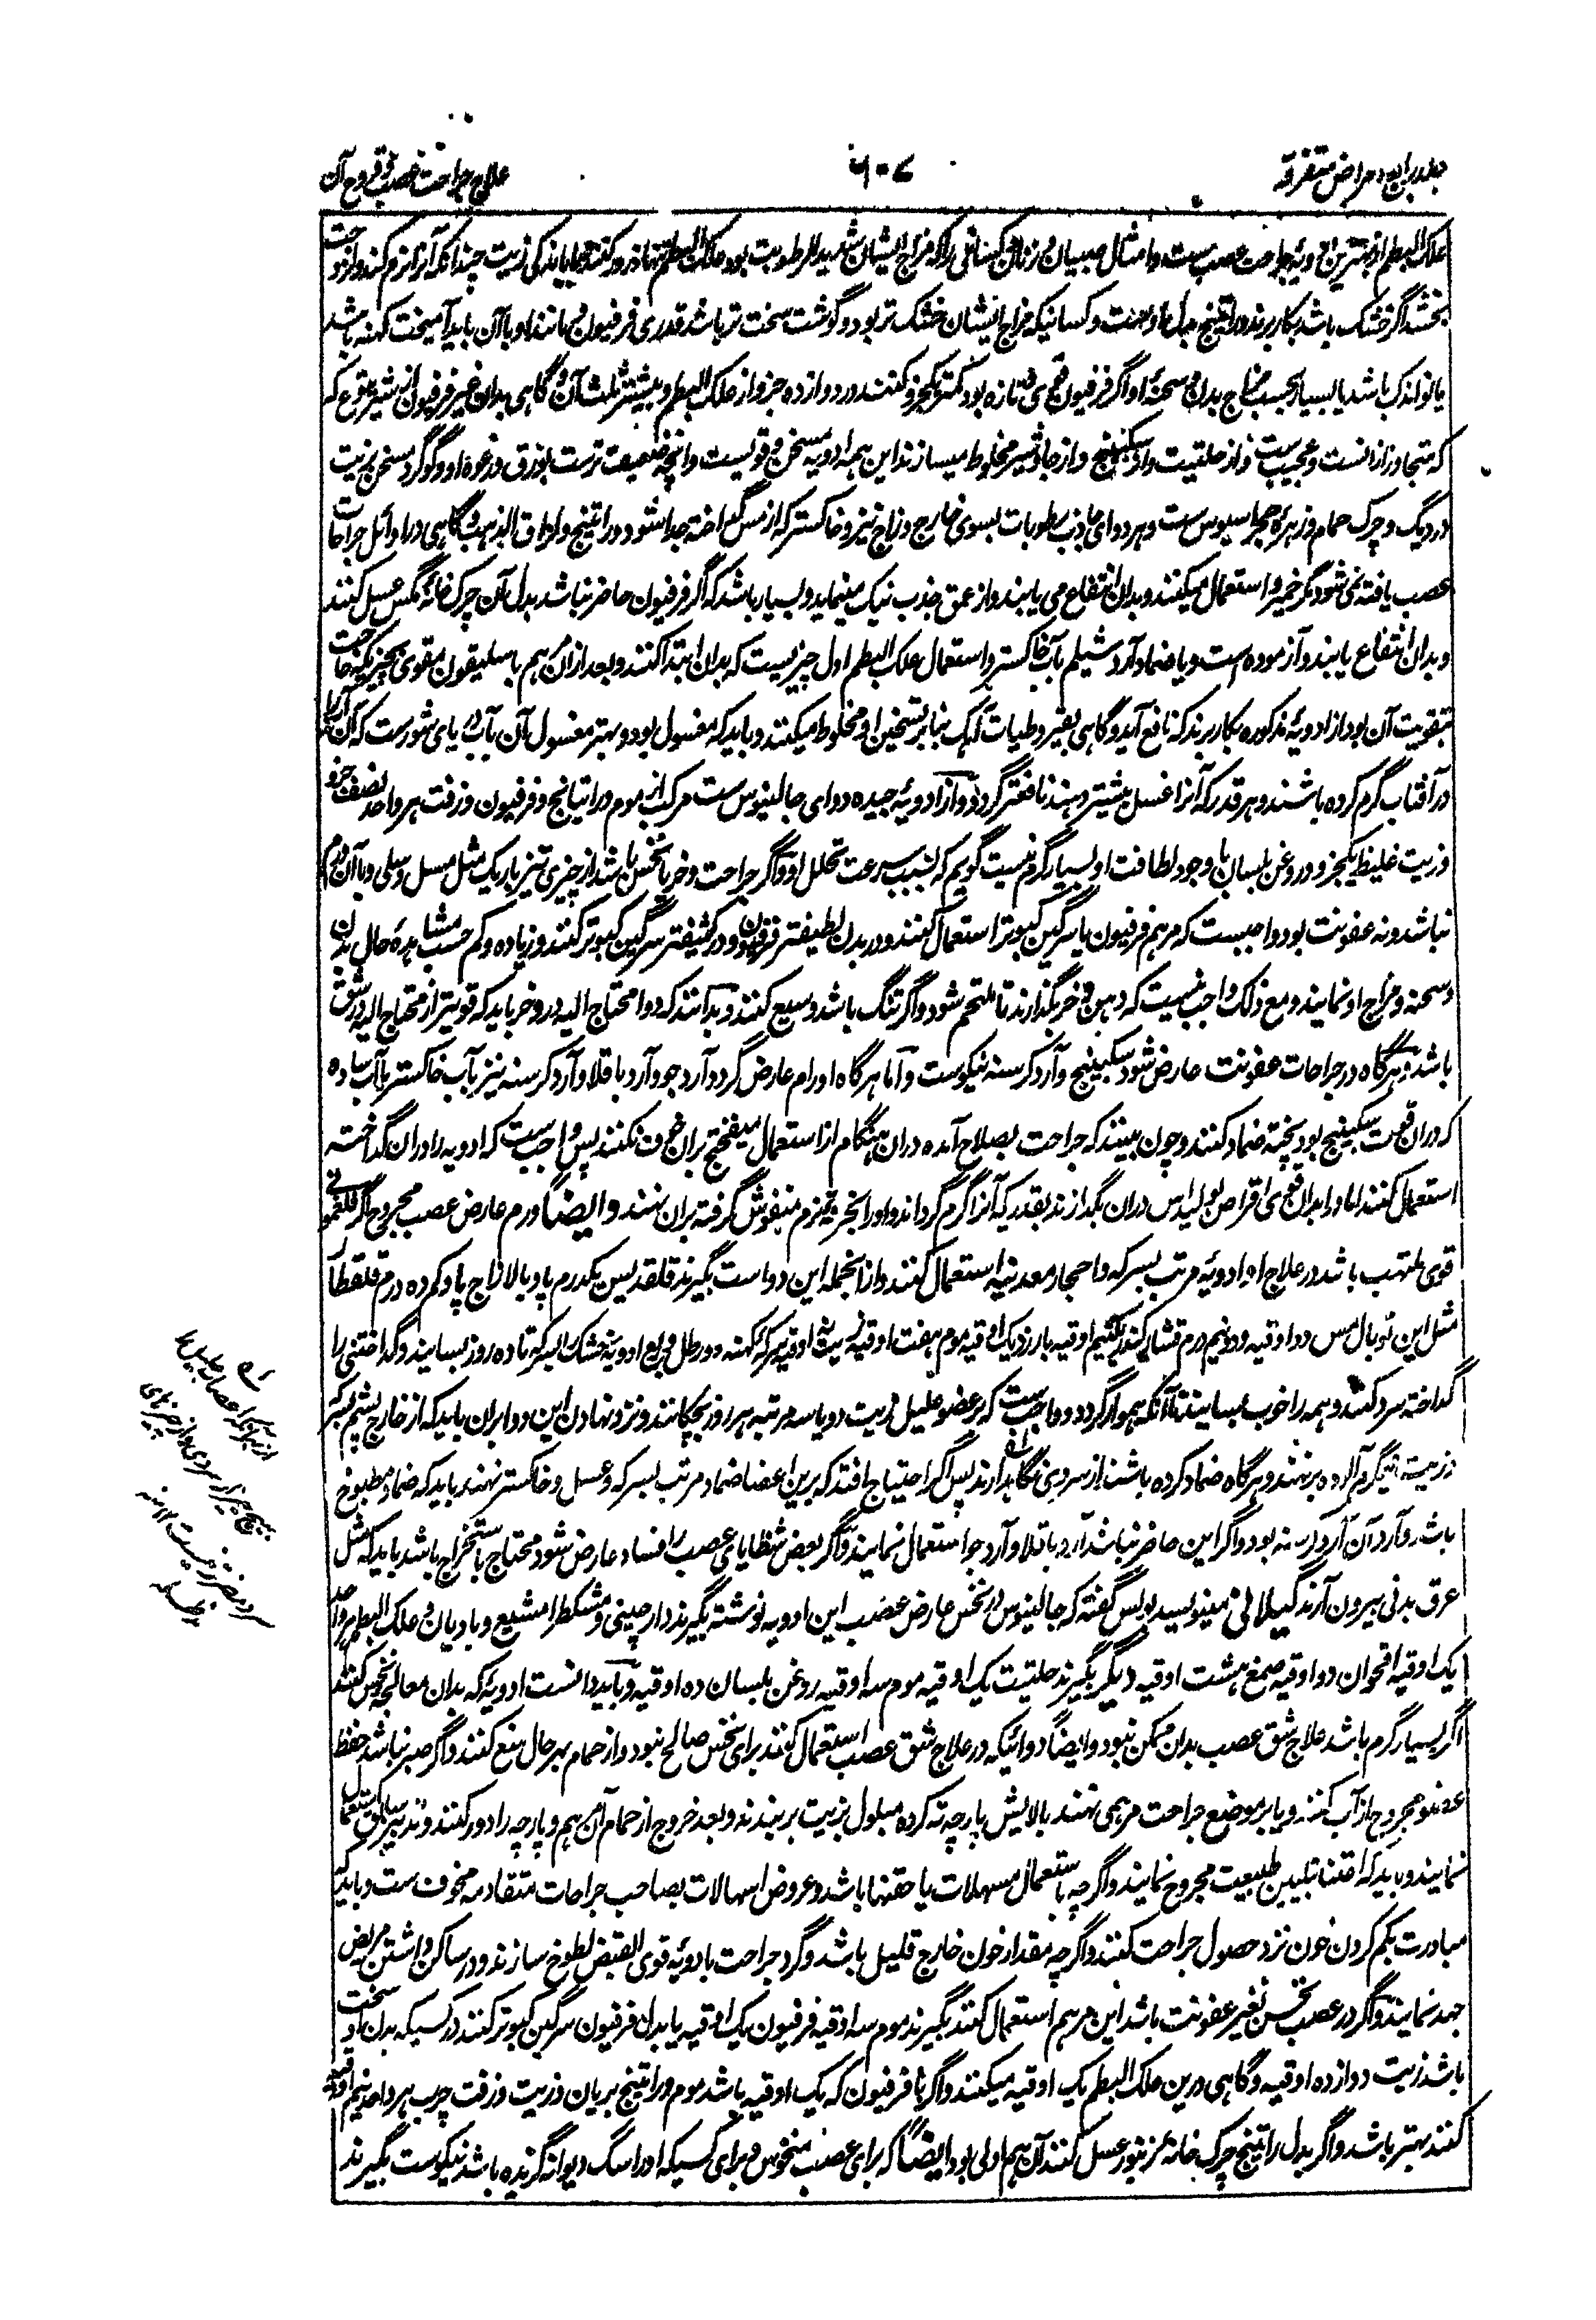 جلد رابع امراض متفرقه
۶۰۷
علاج جراحت عصب و قروح آن
علک البطم از بهترین ادویهٔ جراحت عصب ست و امثال صبیان و زنان و کسانی را که مزاج ایشان شدید الرطوبت بود علک البطم تنها ذرور کنند و یا باندکی زیت چندانکه آنرا نرم کند و لزوجت
بخشد اگر خشک باشد بکار برند و راتینج بدل اوست و کسانیکه مزاج ایشان خشک تر بود و گوشت سخت تر باشد قدری فرفیون مانند او با آن باید آمیخت کهنه باشد
یا نو اندک باشد یا بسیار بحسب مزاج بدن و سحنهٔ او اگر فرفیون قوی و تازه بود کمتر یکجزو کنند در دوازده جزو از علک البطم و بیشتر ثلث آن و گاهی بدان غیر فرفیون از شیر یتوع که
که متجاوز از انست و عجیب ست و از حلتیت و از سکبینج و از جاوشیر مخلوط میسازند این همه ادویه مسخن و قویست و آنچه ضعیف ترست بورق و رغوهٔ او و گوگرد مسخن بزیت
در دیگ و چرک حمام و زهرهٔ حجر اسیوس ست و هر دوای جاذب رطوبات بسوی خارج و زاج نیز و خاکستر که از مس گداخته جدا شود و راتینج و لزاق الذهب و گاهی در اوائل جراحات
عصب یافته نمی شود مگر خمیر و استعمال میکنند و بدان انتفاع می یابند و از عمق جذب نیک مینماید و بسیار باشد که اگر فرفیون حاضر نباشد بدل آن چرک خانهٔ مگس عسل کنند
و بدان انتفاع یابند و آزموده است و یا ضماد آرد شیلم بآب خاکستر و استعمال علک البطم اول چیزیست که بدان ابتدا کنند و بعد ازان مرهم باسلیقون مقوی بچیزیکه حاجت
بتقویت آن بود از ادویهٔ مذکوره بکار برند که نافع آید و گاهی بقیروطیات آهک بنابر تسخین او مخلوط میکنند و باید که مغسول بود و بهتر مغسول آن بآب دریای شورست که آنرا
در آفتاب گرم کرده باشند و هر قدر که آنرا غسل بیشتر دهند نافعتر گردد و از ادویهٔ جیده دوای جالینوس ست مرکب از موم و راتیانج و فرفیون و زفت هر واحد نصف جزو
و زیت غلیظ یکجزو و روغن بلسان با وجود لطافت او بسیار گرم نیست گویم که بسبب سرعت تحلل او و اگر جراحت وخز یا نخس باشد از چیزی تیز باریک مثل مسل و سلی و با آن ورم
نباشد و نه عفونت بود واجبست که مرهم فرفیون یا سرگین کبوتر استعمال کنند و در بدن لطیفتر فرفیون و در کثیفتر سرگین کبوتر کنند و زیاده و کم حسب مشاهدهٔ حال بدن
و سحنه و مزاج او نمایند و مع ذلک واجب نیست که دهن وخز بگذارند تا ملتحم شود و اگر تنگ باشد وسیع کنند و بدانند که دوا محتاج الیه در وخز باید که قویتر از محتاج الیه در شق
باشد و هرگاه در جراحات عفونت عارض شود سکبینج و آرد کرسنه نیکوست و اما هرگاه اورام عارض گردد آرد جو و آرد باقلا و آرد کرسنه نیز بآب خاکستر یا آب ساده
که دران قوت سکبینج بود پخته ضماد کنند و چون بینند که جراحت بصلاح آمده دران هنگام از استعمال میفختج بران حرف نکنند پس واجب ست که ادویه را دران گداخته
استعمال کنند اما در ابدان قوی اقراص بولیداس دران بگدازند بقدریکه آنرا گرم گرداند و او را بخرقهٔ نرم منفوش گرفته بران نهند و ایضاً ورم عارض عصب مجروح اگر فلغمونی
قوی ملتهب باشد در علاج او ادویهٔ مرتب بسرکه و احجار معدنیه استعمال کنند و ازانجمله این دواست بگیرند قلقدیس یکدرم پاو بالا زاج پاو کم ده درم قلقطار
مثل این توبال مس دو اوقیه و دو نیم درم قشار کندر یکنیم اوقیه بارزد یک اوقیه موم هفت اوقیه زیت اوقیه سرکهٔ کهنه دو رطل و ربع ادویهٔ خشک را بسرکه تا ده روز بسایند و گداختنی را
گداخته سرد کنند و همه را خوب بسایند تا آنکه هموار گردد و واجب ست که بر عضو علیل زیت دو یا سه مرتبه هر روز بچکانند و نزد نهادن این دوا بران باید که از خارج پشم بسرکه
و زیت نیمگرم آلوده بر نهند و هرگاه ضماد کرده باشند از سردی نگاهدارند پس اگر احتیاج افتد که برین اعضا ضماد مرتب بسرکه و عسل و خاکستر نهند باید که ضماد مطبوخ
باشد و آرد آن آرد کرسنه بود و اگر این حاضر نباشد آرد باقلا و آرد جو استعمال نمایند و اگر بعض شظایای عصب را فساد عارض شود محتاج باستخراج باشد باید که مثل
عرق بدنی بیرون آرند گیلانی مینویسد بولس گفته که جالینوس در نخس عارض عصب این ادویه نوشته بگیرند دارچینی و مشکطرامشیع و بادیان و علک البطم هر واحد
یک اوقیه اقحوان دو اوقیه صمغ هشت اوقیه دیگر بگیرند حلتیت یک اوقیه موم سه اوقیه روغن بلسان ده اوقیه و باید دانست ادویهٔ که بدان معالجهٔ نخس کنند
اگر بسیار گرم باشد علاج شق عصب بدان ممکن نبود و ایضاً دوائیکه در علاج شق عصب استعمال کنند برای نخس صالح نبود و از حمام بهر حال منع کنند و اگر صبر نباشد حفظ
عضو مجروح از آب کنند و یا بر موضع جراحت مرهمی نهند بالایش پارچه ته کرده مبلول بزیت بر بندند و بعد خروج از حمام آن مرهم و پارچه را دور کنند و تدبیر سابق استعمال
نمایند و باید که اعتنا بتلیین طبیعت مجروح نمایند و اگر چه باستعمال مسهلات یا حقنها باشد و عروض اسهالات بصاحب جراحات متقادمه مخوف ست و باید که
مبادرت بکم کردن خون نزد حصول جراحت کنند و اگر چه مقدار خون خارج قلیل باشد و گرد جراحت بادویهٔ قوی القبض لطوخ سازند و در ساکن داشتن مریض
جهد نمایند و اگر در عصب نخس بغیر عفونت باشد این مرهم استعمال کنند بگیرند موم سه اوقیه فرفیون یک اوقیه یا بدل فرفیون سرگین کبوتر کنند در کسیکه بدن او سخت
باشد زیت دوازده اوقیه و گاهی درین علک البطم یک اوقیه میکنند و اگر با فرفیون که یک اوقیه باشد موم و راتینج بریان و زیت و زفت چرب هر واحد نیم اوقیه
کنند بهتر باشد و اگر بدل راتینج چرک خانهٔ زنبور عسل کنند آن هم اولی بود ایضاً که برای عصب منخوس و برای کسیکه او را سگ دیوانه گزیده باشد نیکوست بگیرند